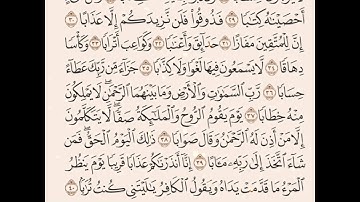 أَحْصَيْنَٰهُ كِتَٰبًا ٢٩ فَذُوقُوا۟ فَلَن نَّزِيدَكُمْ إِلَّا عَذَابًا ٣٠
إِنَّ لِلْمُتَّقِينَ مَفَازًا ٣١ حَدَآئِقَ وَأَعْنَٰبًا ٣٢ وَكَوَاعِبَ أَتْرَابًا ٣٣ وَكَأْسًا
دِهَاقًا ٣٤ لَّا يَسْمَعُونَ فِيهَا لَغْوًا وَلَا كِذَّٰبًا ٣٥ جَزَآءً مِّن رَّبِّكَ عَطَآءً
حِسَابًا ٣٦ رَّبِّ ٱلسَّمَٰوَٰتِ وَٱلْأَرْضِ وَمَا بَيْنَهُمَا ٱلرَّحْمَٰنِ لَا يَمْلِكُونَ
مِنْهُ خِطَابًا ٣٧ يَوْمَ يَقُومُ ٱلرُّوحُ وَٱلْمَلَٰٓئِكَةُ صَفًّا لَّا يَتَكَلَّمُونَ
إِلَّا مَنْ أَذِنَ لَهُ ٱلرَّحْمَٰنُ وَقَالَ صَوَابًا ٣٨ ذَٰلِكَ ٱلْيَوْمُ ٱلْحَقُّ فَمَن
شَآءَ ٱتَّخَذَ إِلَىٰ رَبِّهِۦ مَـَٔابًا ٣٩ إِنَّآ أَنذَرْنَٰكُمْ عَذَابًا قَرِيبًا يَوْمَ يَنظُرُ
ٱلْمَرْءُ مَا قَدَّمَتْ يَدَاهُ وَيَقُولُ ٱلْكَافِرُ يَٰلَيْتَنِى كُنتُ تُرَٰبًۢا ٤٠